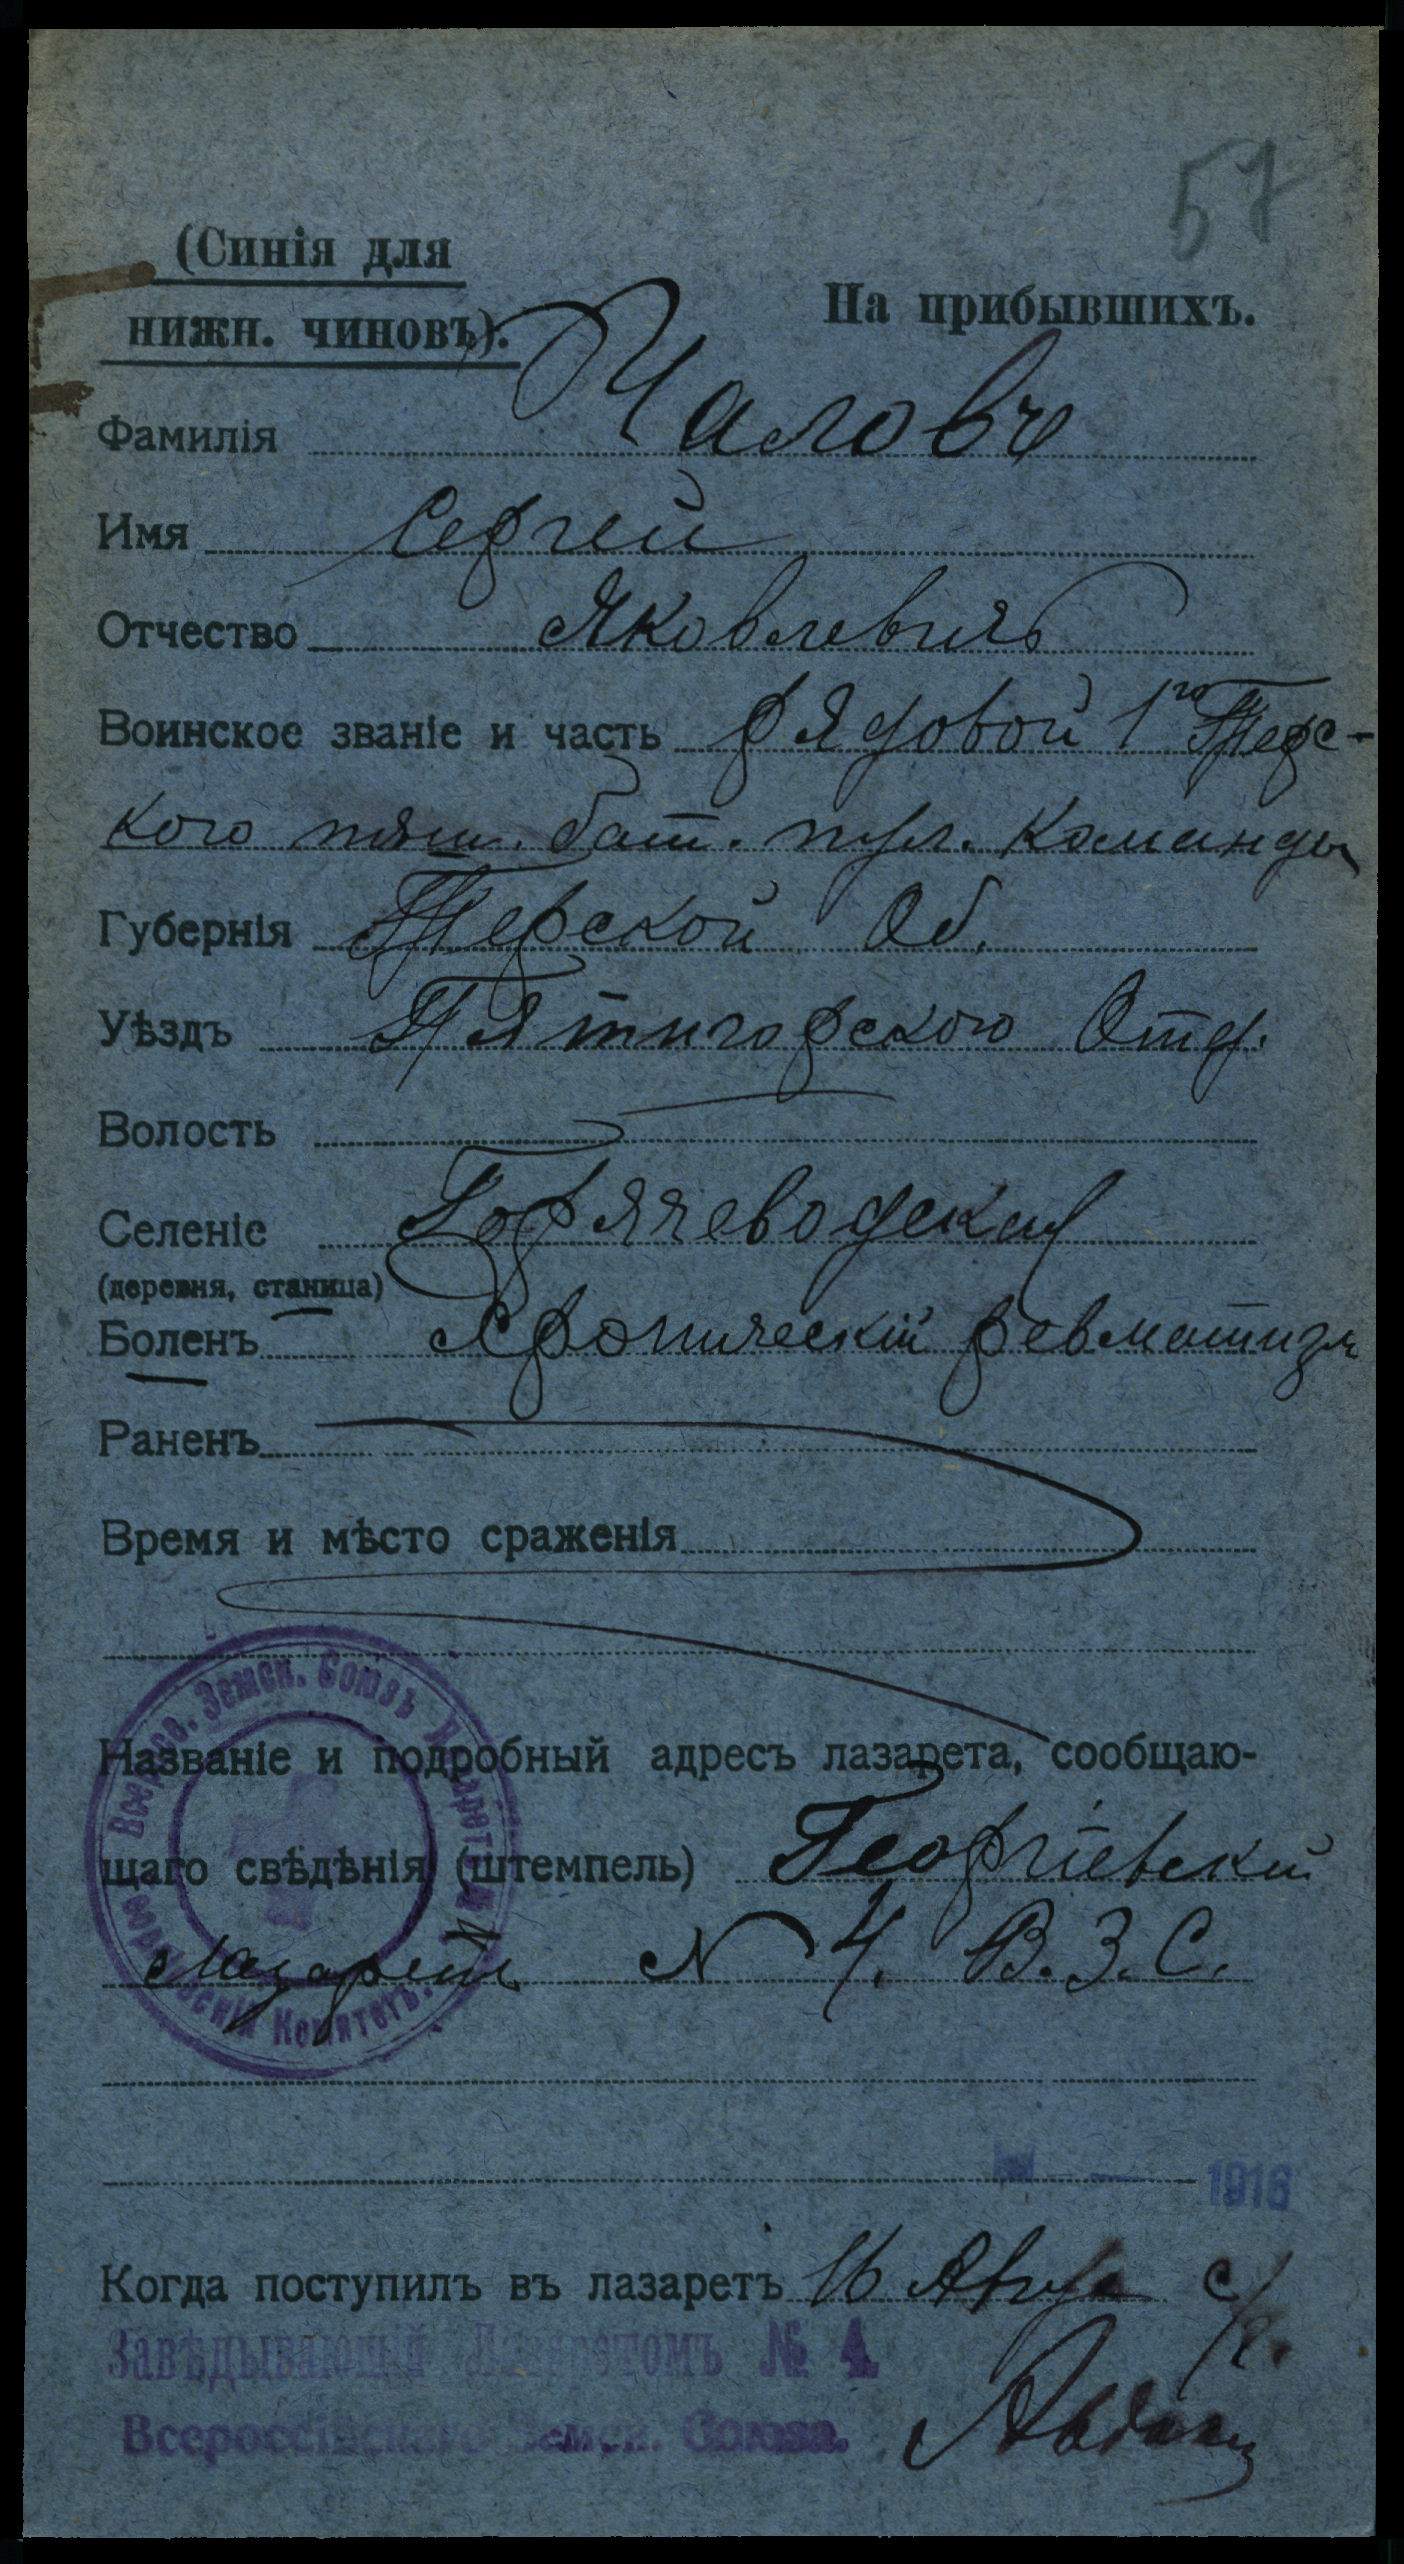 57
(Синія для
нижн. чиновъ).
На прибывшихъ.
Фамилія Чаловъ
Имя Сергей
Отчество Яковлевичъ
Воинское званіе и часть рядовой 1го Терс-
кого пласт. бат. пул. Команды
Губернія Терской Об.
Уѣздъ Пятигорского Отд.
Волость
Селеніе Горячеводская
(деревня, станица)
Боленъ Хроническій ревматизм
Раненъ
Время и мѣсто сраженія
Названіе и подробный адресъ лазарета, сообщаю-
щаго свѣдѣнія (штемпель) Георгіевскій
Лазаретъ № 4. В.З.С.
Всеросс. Земск. Союзъ Лазаретъ
Комитетъ.
1916
Когда поступилъ въ лазаретъ 16 Авгус с/г.
Завѣдывающій Лазаретомъ № 4
Всероссійскаго Земск. Союза.